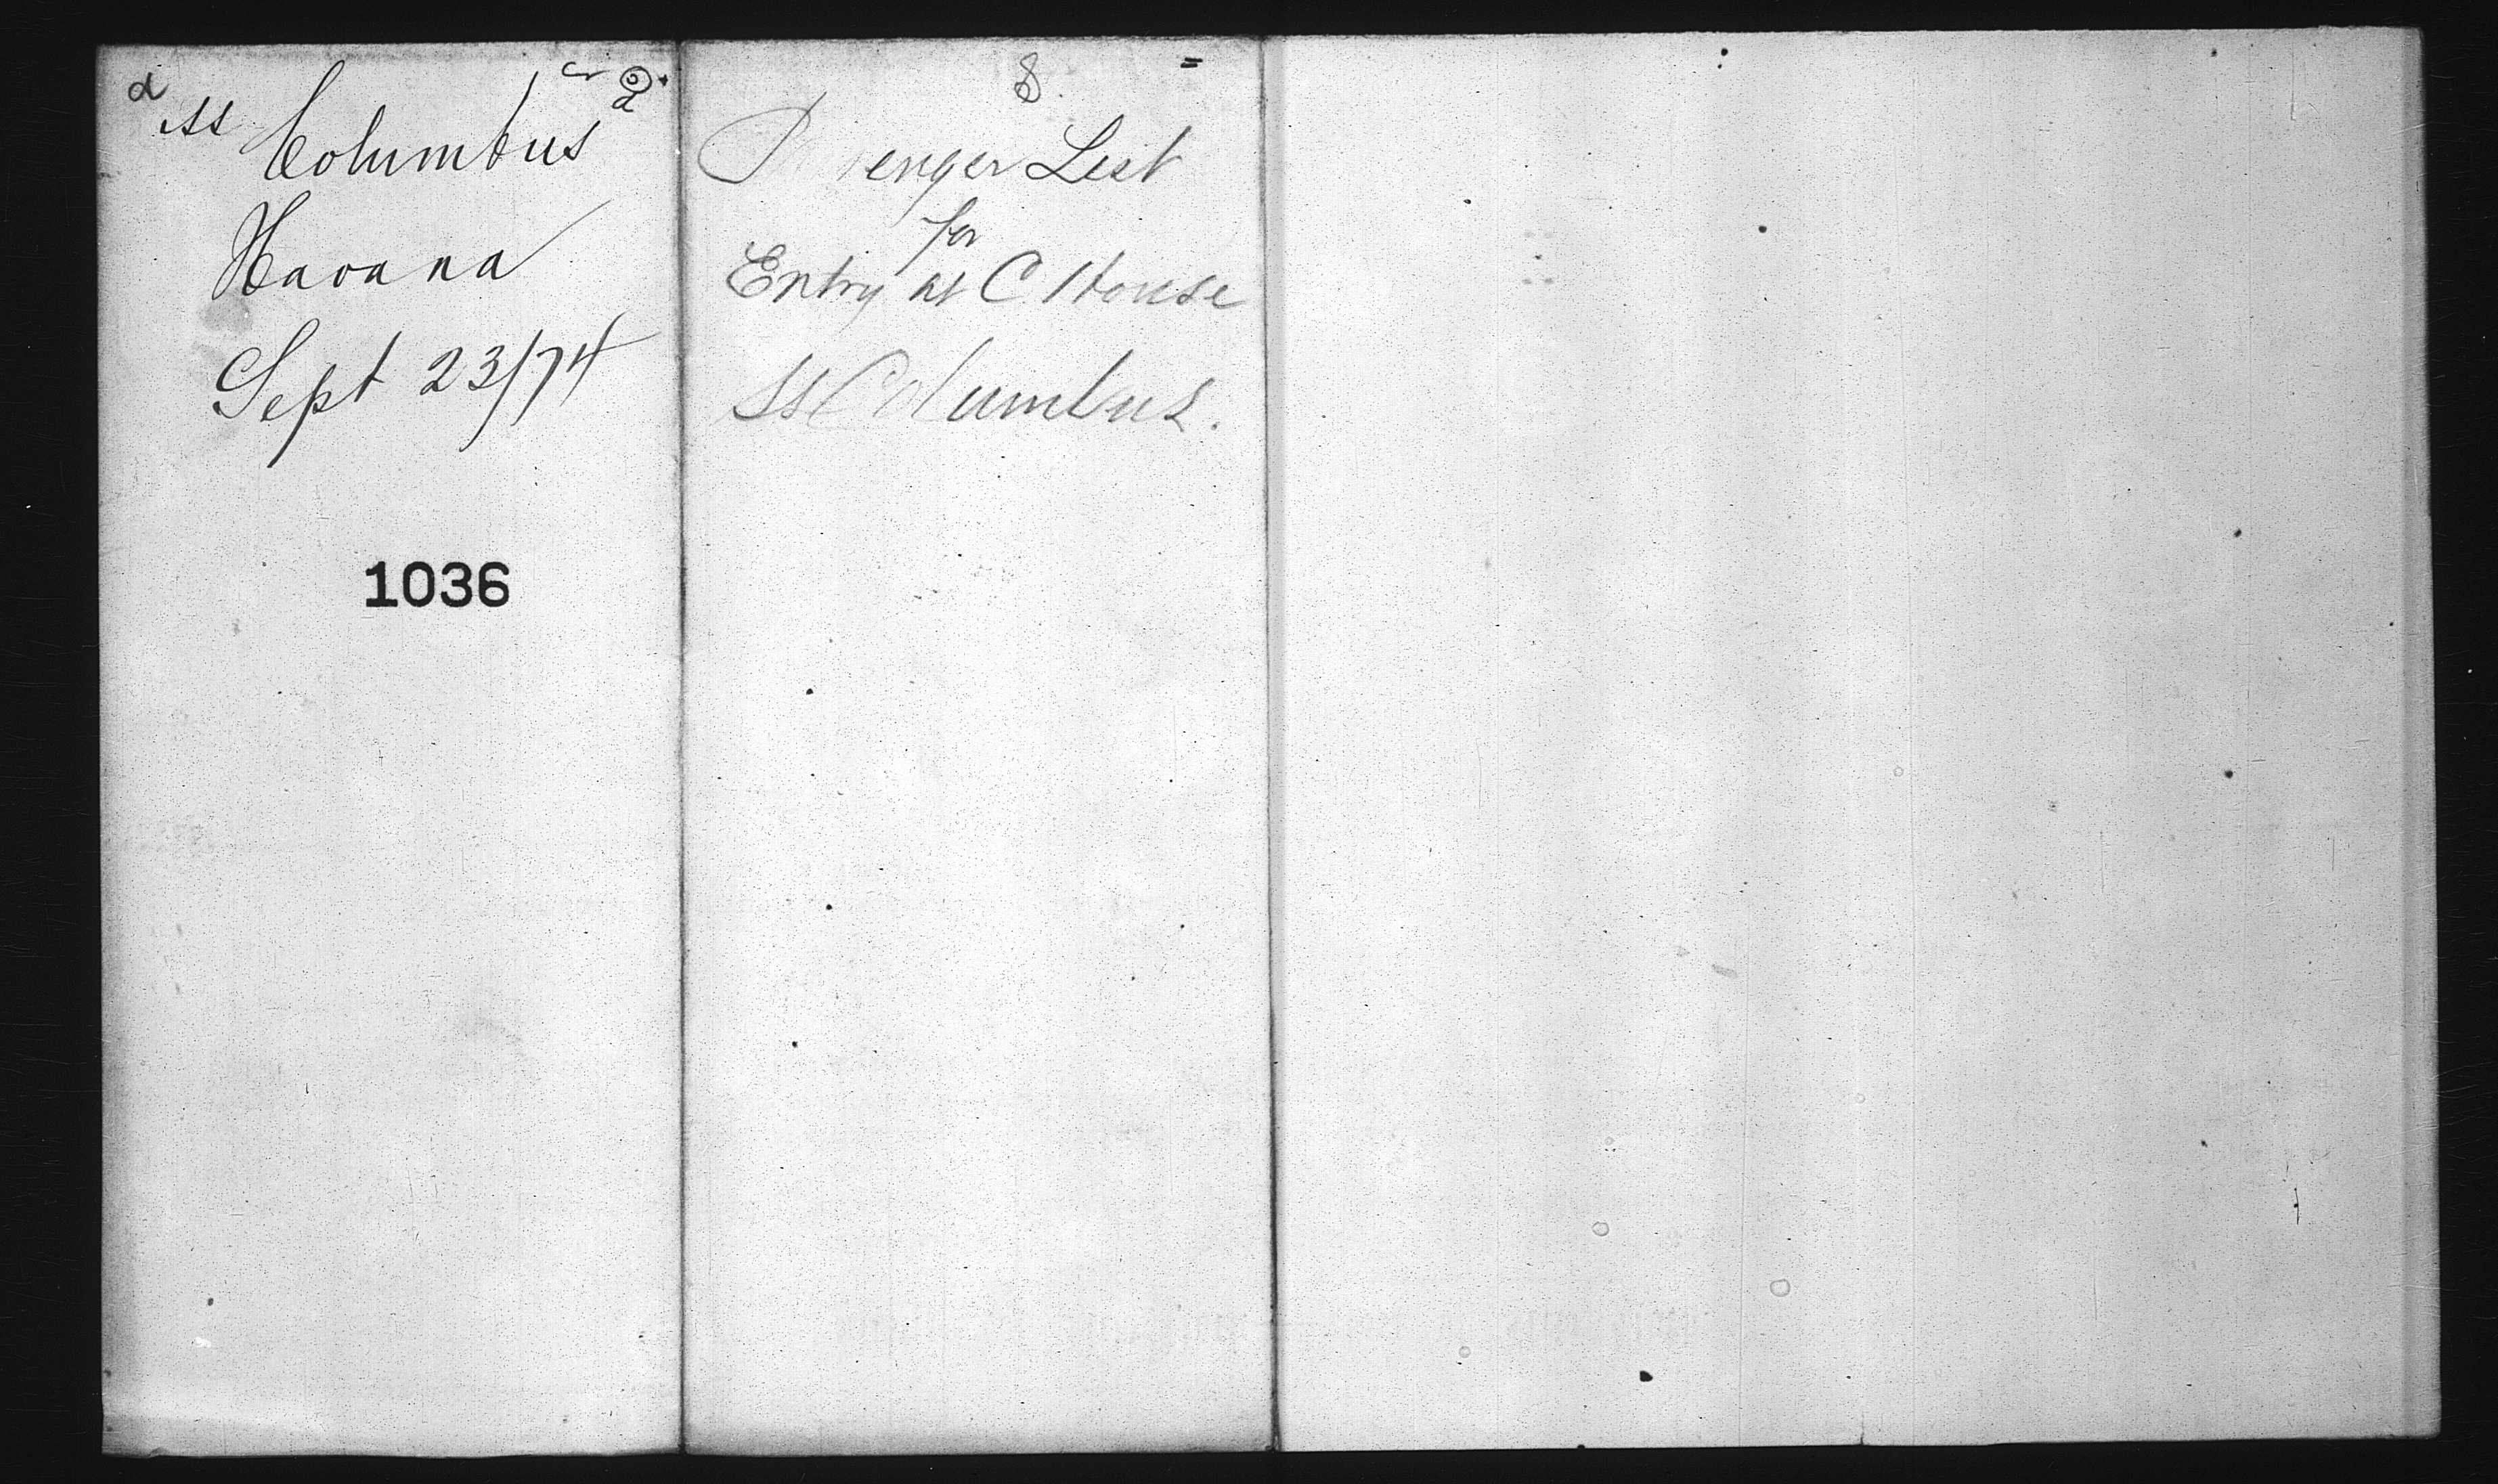 d
SS Columbus
Havana
Sept 23/74
1036
8.
Passenger List
for
Entry at C. House
SS Columbus.